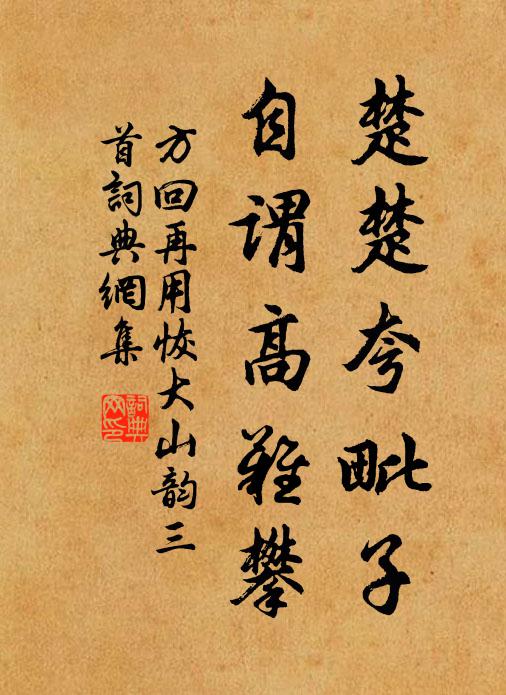 楚楚夸毗子
自谓高难攀
方回再用恢大山韵三
首詞典網集
詞典
网印